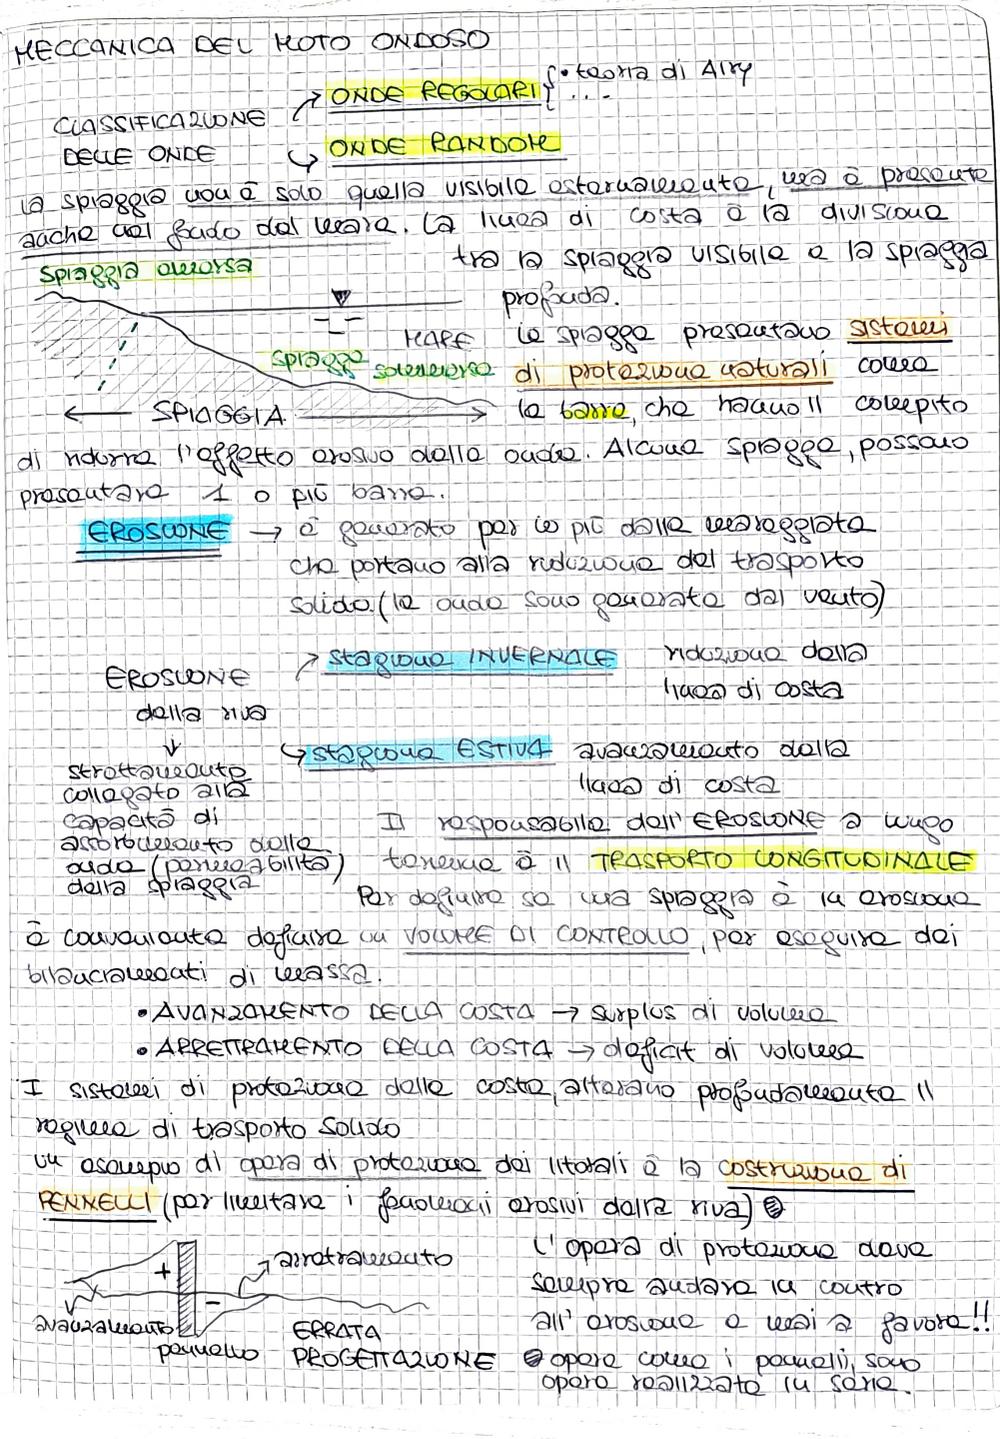 MECCANICA DEL MOTO ONDOSO
CLASSIFICAZIONE DELLE ONDE
→ ONDE REGOLARI { • teoria di Airy
• ...
→ ONDE RANDOM
la spiaggia non è solo quella visibile esternamente, ma è presente
anche nel fondo del mare. La linea di costa è la divisione
tra la spiaggia visibile e la spiaggia
profonda.
spiaggia emersa
MARE
spiaggia sommersa
← SPIAGGIA →
le spiagge presentano sistemi
di protezione naturali come
le barre, che hanno il compito
di ridurre l'effetto erosivo delle onde. Alcune spiagge, possono
presentare 1 o più barre.
EROSIONE → è generato per lo più dalle mareggiate
che portano alla riduzione del trasporto
solido. (le onde sono generate dal vento)
EROSIONE
della riva
→ stagione INVERNALE riduzione della
linea di costa
→ stagione ESTIVA avanzamento della
linea di costa
↓
strettamente
collegato alla
capacità di
assorbimento delle
onde (permeabilità)
della spiaggia
Il responsabile dell'EROSIONE a lungo
termine è il TRASPORTO LONGITUDINALE
Per definire se una spiaggia è in erosione
è conveniente definire un VOLUME DI CONTROLLO, per eseguire dei
bilanciamenti di massa.
• AVANZAMENTO DELLA COSTA → surplus di volume
• ARRETRAMENTO DELLA COSTA → deficit di volume
I sistemi di protezione delle coste, alterano profondamente il
regime di trasporto solido
un esempio di opera di protezione dei litorali è la costruzione di
PENNELLI (per limitare i fenomeni erosivi della riva)
arretramento
+
-
avanzamento
pennello
ERRATA
PROGETTAZIONE
L'opera di protezione deve
sempre andare in contro
all'erosione e mai a favore!!
opere come i pennelli, sono
opere realizzate in serie.